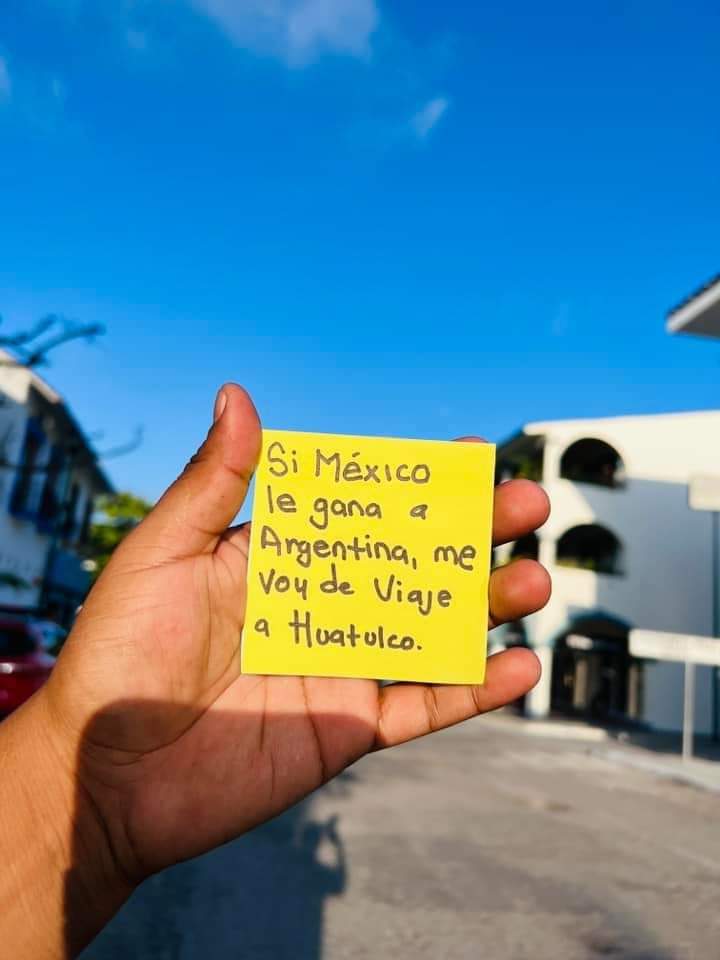 Si México
le gana a
Argentina, me
voy de viaje
a Huatulco.